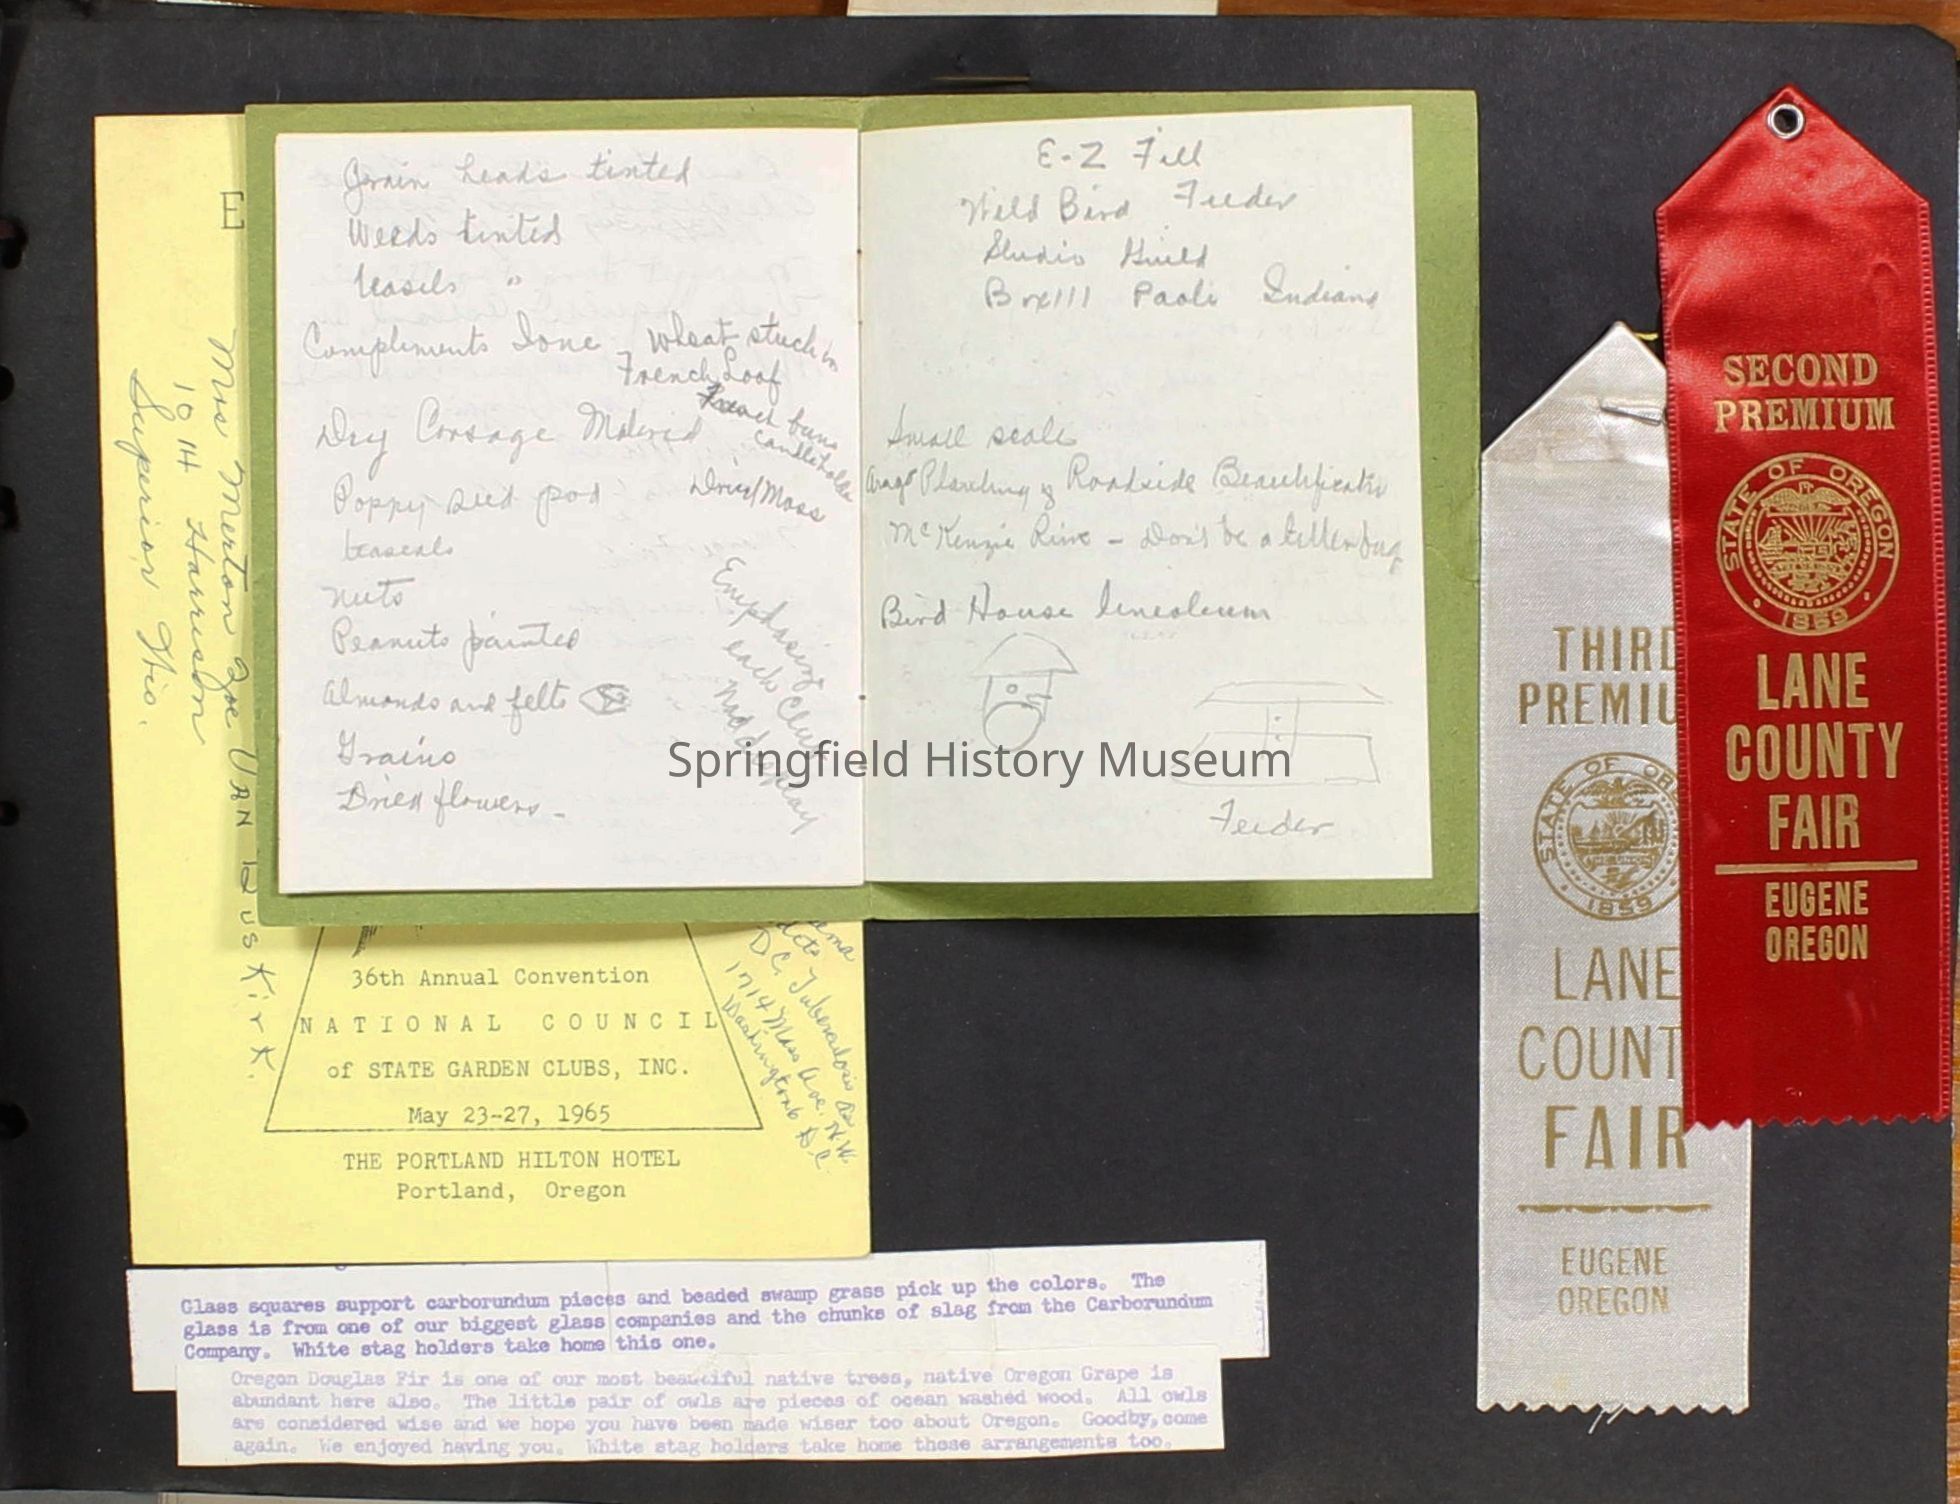 E
Mrs Merton Zoe Van Buskirk.
1014 Harrison
Superior Wis.
Grain heads tinted
Weeds tinted
teasels "
Compliments Ione
wheat stuck in
French Loaf
French buns
candleholder
Dry Corsage Material
Dried Moss
Poppy seed pod
teasels
nuts
Peanuts painted
Almonds and felt
Grains
Dried flowers -
Emphasize
each Club
E-Z Fill
Wild Bird Feeder
Studio Guild
Box 111 Paoli Indiana
Small scale
Planting of Roadside Beautification
McKenzie River - Don't be a litterbug
Bird House linoleum
Feeder
36th Annual Convention
NATIONAL COUNCIL
of STATE GARDEN CLUBS, INC.
May 23-27, 1965
THE PORTLAND HILTON HOTEL
Portland, Oregon
D.C. Tuberculosis
1714 Mass Ave. N.W.
Washington 6 D.C.
Glass squares support carborundum pieces and beaded swamp grass pick up the colors. The
glass is from one of our biggest glass companies and the chunks of slag from the Carborundum
Company. White stag holders take home this one.
Oregon Douglas Fir is one of our most beautiful native trees, native Oregon Grape is
abundant here also. The little pair of owls are pieces of ocean washed wood. All owls
are considered wise and we hope you have been made wiser too about Oregon. Goodby, come
again. We enjoyed having you. White stag holders take home these arrangements too.
THIRD
PREMIU
STATE OF ORE
1859
LANE
COUNT
FAIR
EUGENE
OREGON
SECOND
PREMIUM
STATE OF OREGON
1859
LANE
COUNTY
FAIR
EUGENE
OREGON
Springfield History Museum